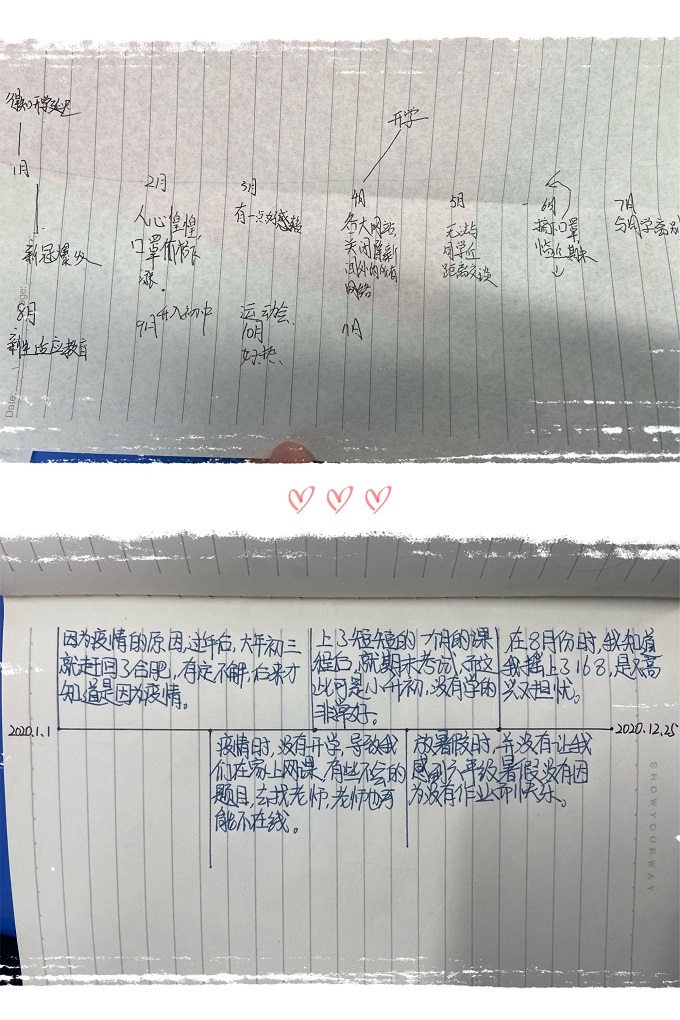 得知开学延迟
开学
1月
2月
3月
4月
5月
6月
7月
人心惶惶,
口罩价格飞
涨.
有一点好感转
各大网站
关闭
网络
无法与
同学近
距离交谈
摘下口罩,
临近期末
与同学离别
新冠爆发
8月
新生适应教育
9月升入初中
运动会
10月
好热
11月
因为疫情的原因,过年后,大年初三
就赶回了合肥,有定不解,后来才
知道是因为疫情。
上了短短的一个月的课
程后,就期末考试,而这
此可是小升初,没有学的
非常好。
在8月份时,我知道
我摇上了168,是又高
兴又担忧。
2020.1.1
2020.12.25
疫情时,没有开学,导致我
们在家上网课,有些不会的
题目,去找老师,老师也可
能不在线。
放暑假时,并没有让我
感到六年级暑假没有因
为没有作业而快乐。
SHOWYOURWAY
Date: